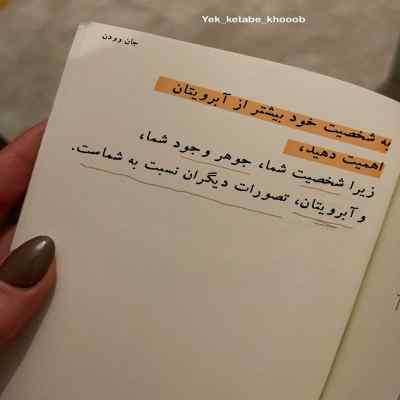 Yek_ketabe_khooob
جان وودن
به شخصیت خود بیشتر از آبرویتان
اهمیت دهید،
زیرا شخصیت شما، جوهر وجود شما،
و آبرویتان، تصورات دیگران نسبت به شماست.